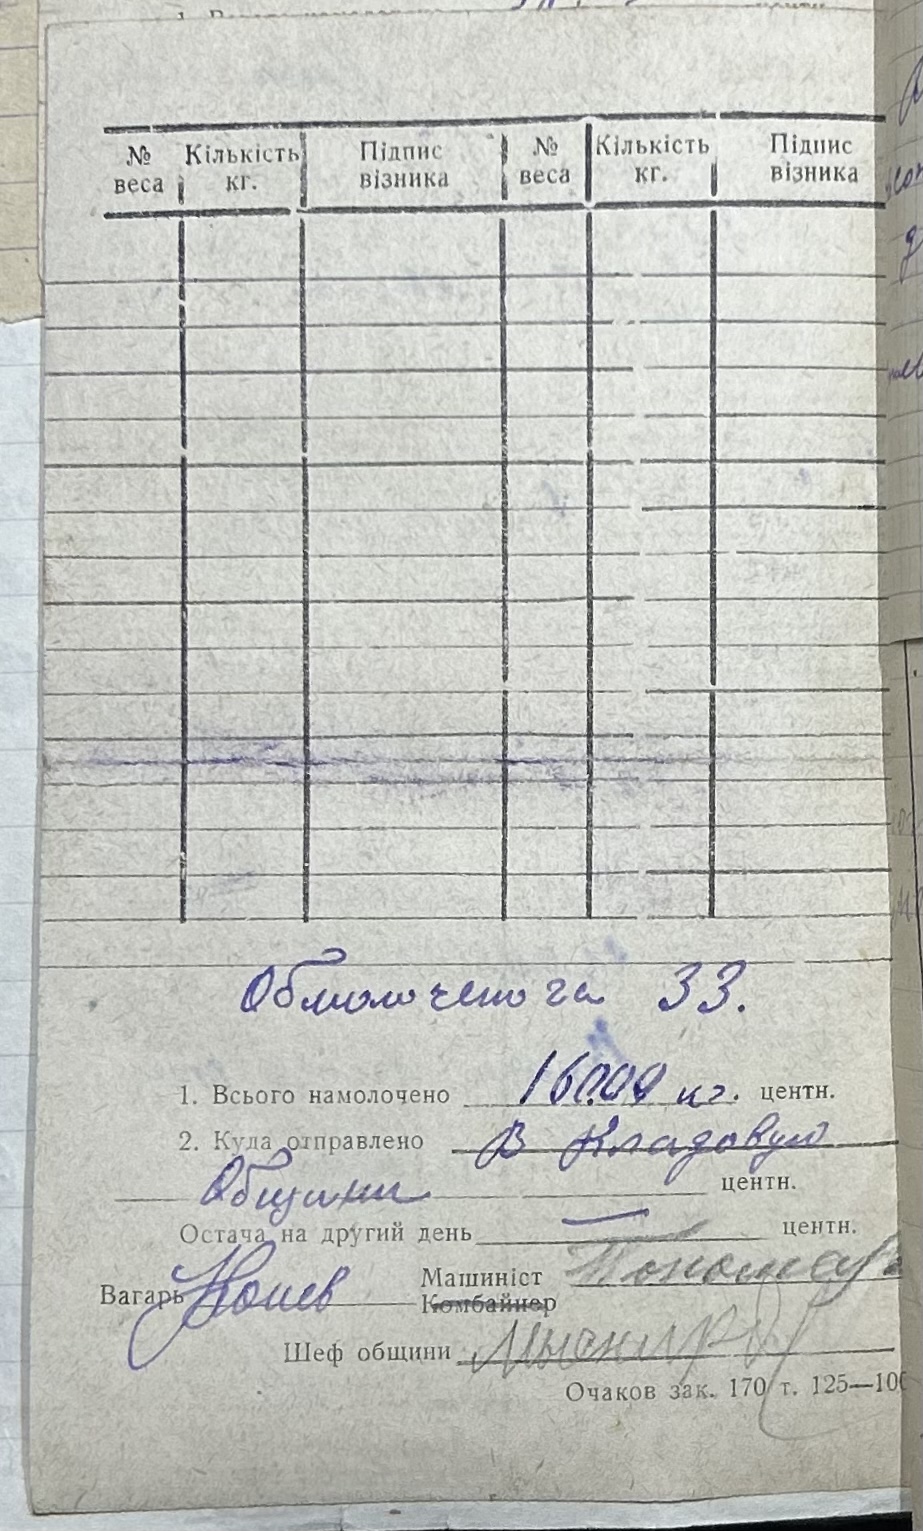 № веса Кількість кг. Підпис візника № веса Кількість кг. Підпис візника
Обмолочено га 33.
1. Всього намолочено 16000 кг. центн.
2. Куда отправлено В Кладовую
Общини центн.
Остача на другий день — центн.
Вагарь Машиніст
Комбайнер
Шеф общини
Очаков зак. 170 т. 125—100